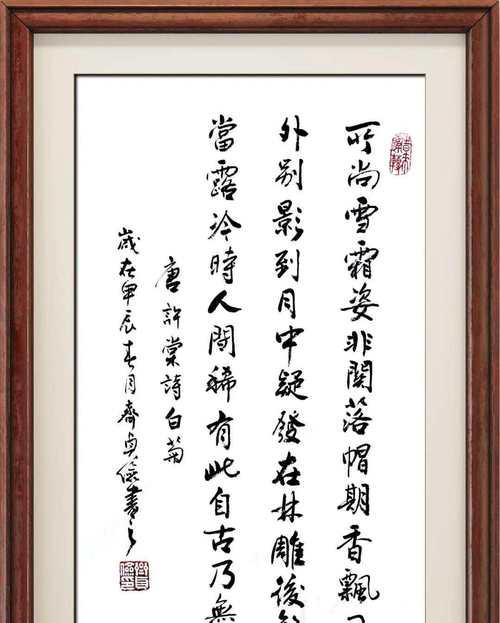 所尚雪霜姿非關落帽期香飄
外别影到月中疑發在林雕後
當露冷時人間稀有此自古乃無
唐許棠詩白菊
歲在甲辰春月齊貞儉書之